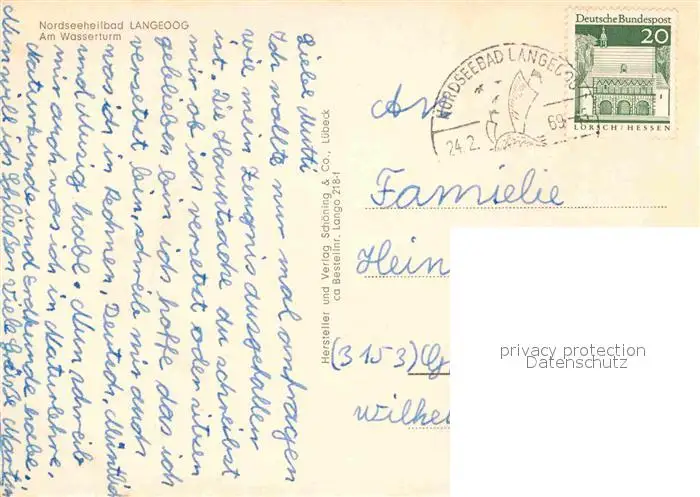 Nordseeheilbad LANGEOOG
Am Wasserturm
Liebe Mutti
Ich wollte nur mal anfragen
wie mein Zeugnis ausgefallen
ist. Die Hauptsache du schreibst
mir ob ich versetzt oder sitzen
geblieben bin ich hoffe das ich
versetzt bin, schreib mir auch
was ich in Rechnen, Deutsch, Mündlich
und Musig habe. Nun schreib
mir auch was ich in Naturlehre,
Naturkunde und Erdkunde habe.
Nun will ich schließen viele Grüße
Hersteller und Verlag Schöning & Co., Lübeck
ca Bestellnr. Lango 218-I
NORDSEEBAD LANGEOOG
24.2. 69
Deutsche Bundespost
20
LORSCH/HESSEN
An
Famielie
Hein
(3153) G
Wilhe
privacy protection
Datenschutz